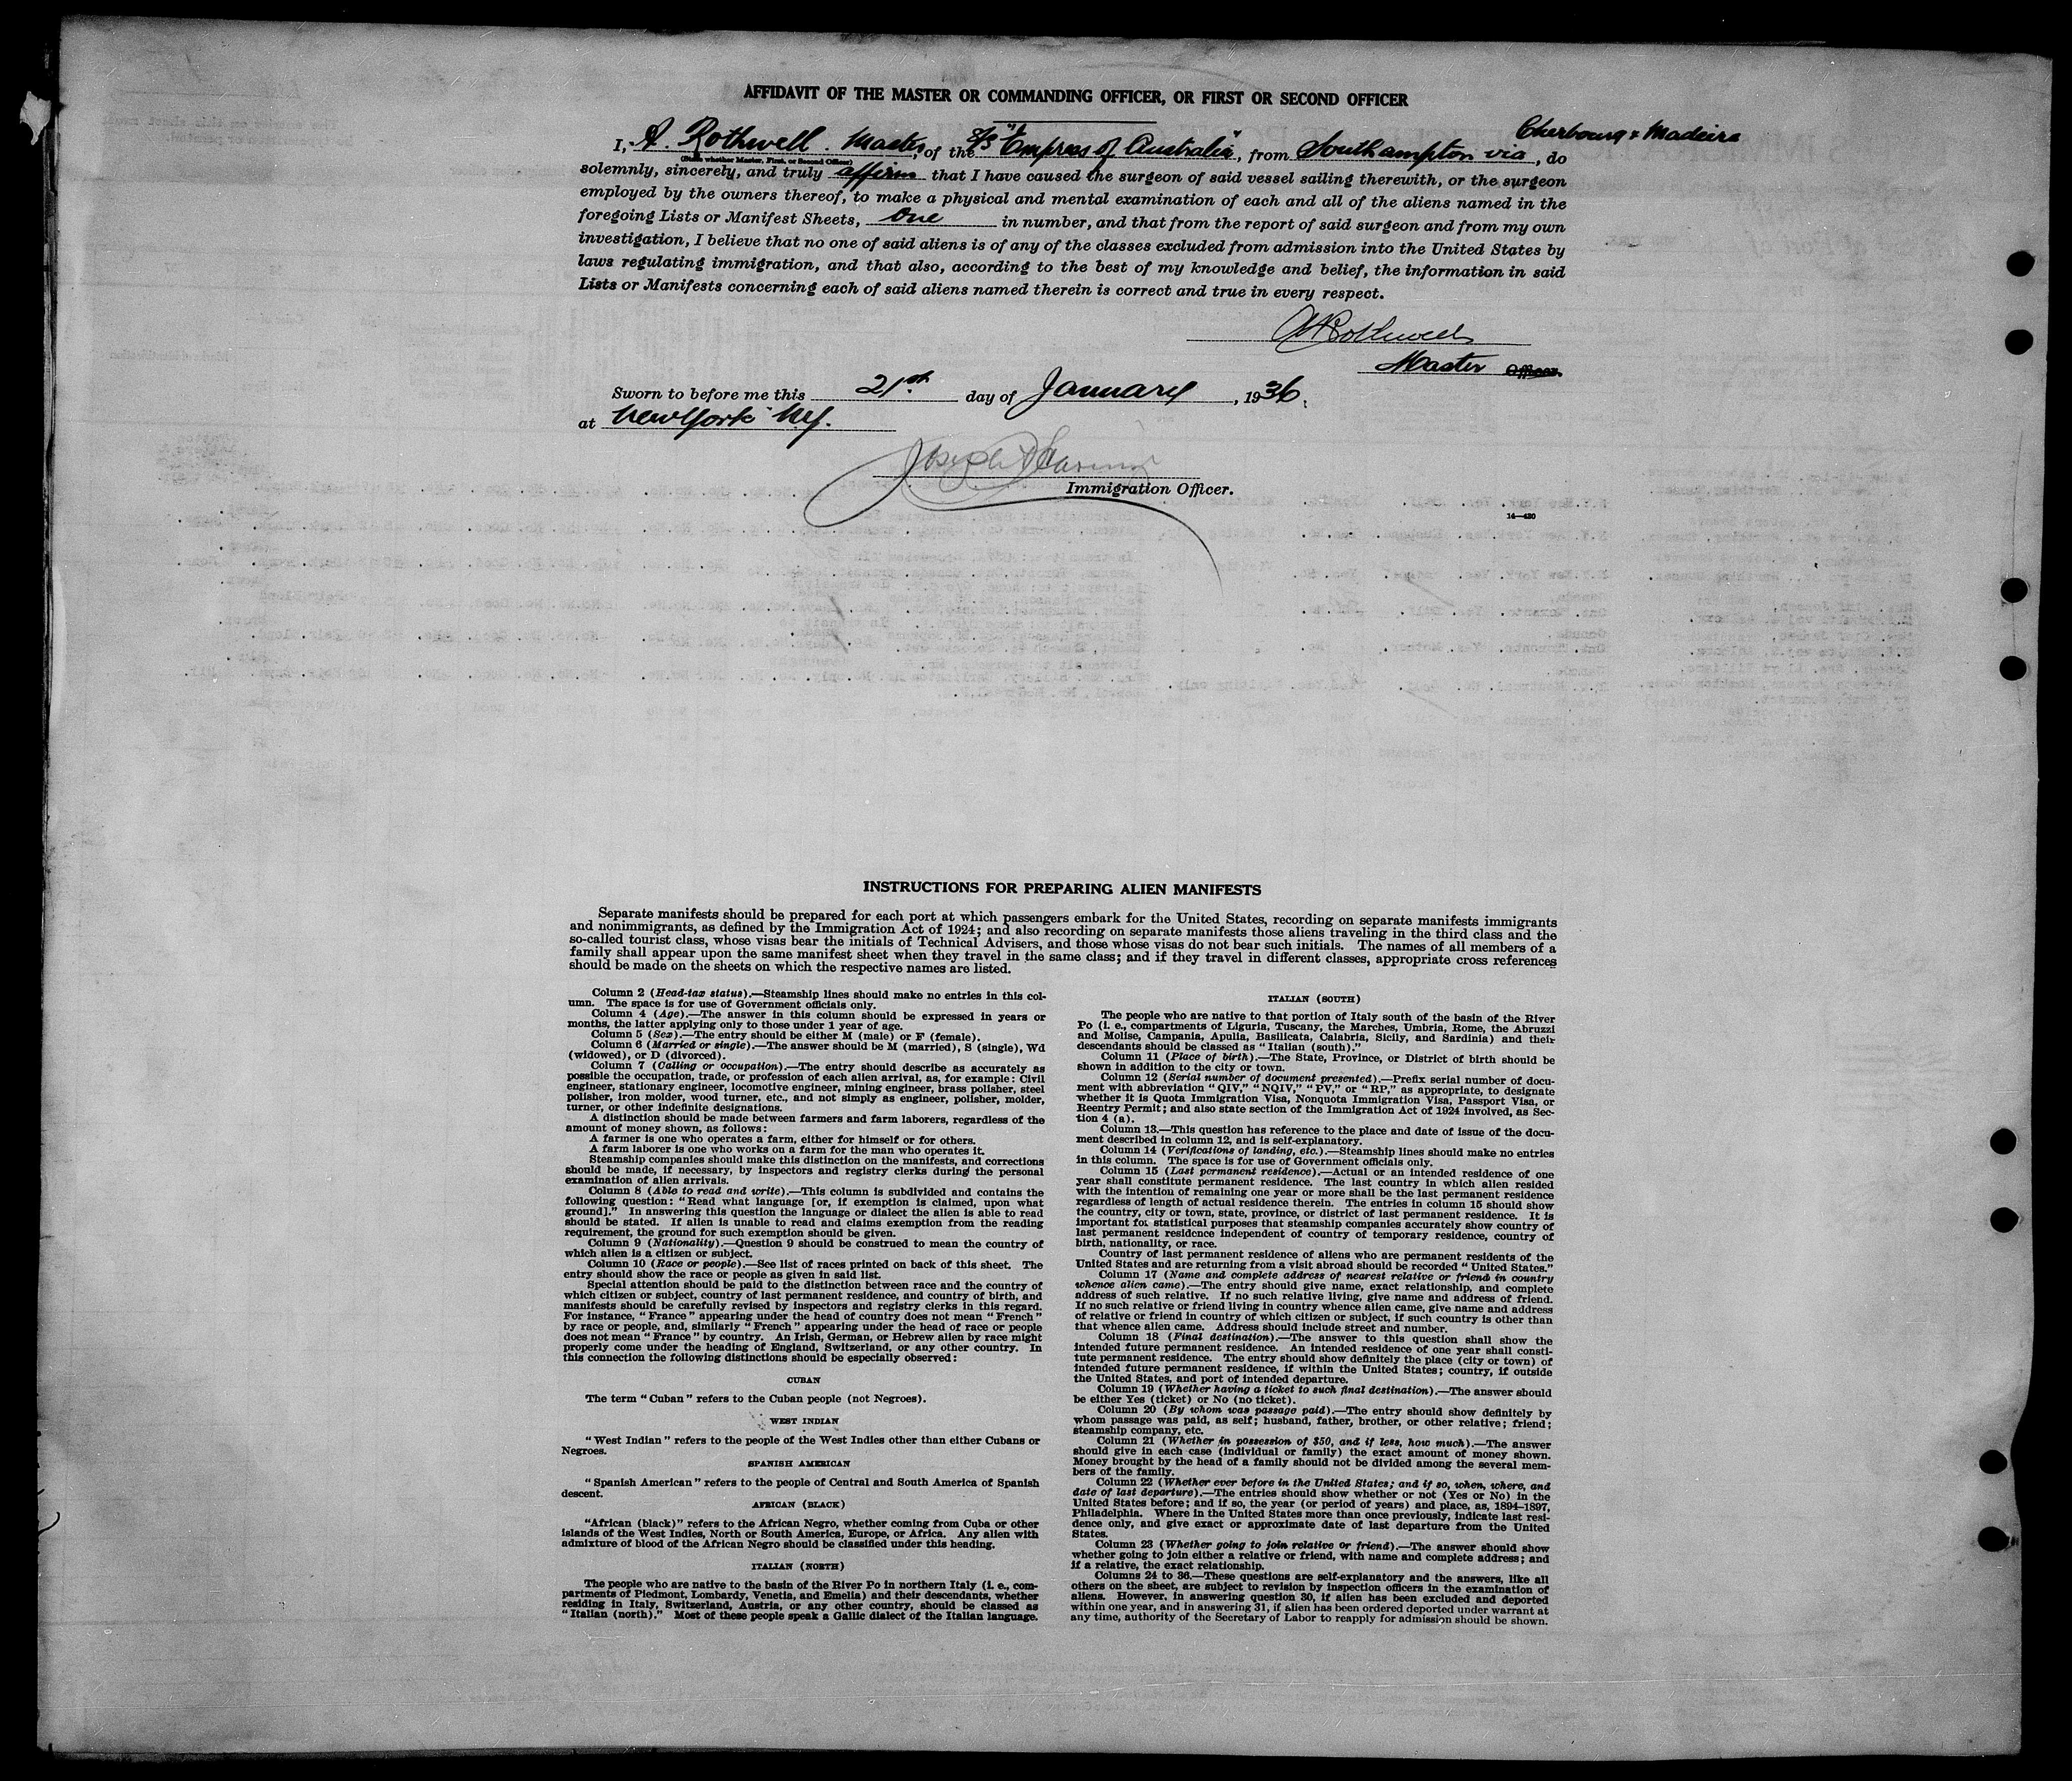 AFFIDAVIT OF THE MASTER OR COMMANDING OFFICER, OR FIRST OR SECOND OFFICER
Cherbourg & Madeira
I, A. Rothwell. Master, of the S/S "Empress of Australia", from Southampton via, do
(State whether Master, First, or Second Officer)
solemnly, sincerely, and truly affirm that I have caused the surgeon of said vessel sailing therewith, or the surgeon
employed by the owners thereof, to make a physical and mental examination of each and all of the aliens named in the
foregoing Lists or Manifest Sheets, One in number, and that from the report of said surgeon and from my own
investigation, I believe that no one of said aliens is of any of the classes excluded from admission into the United States by
laws regulating immigration, and that also, according to the best of my knowledge and belief, the information in said
Lists or Manifests concerning each of said aliens named therein is correct and true in every respect.
A Rothwell
Master Officer.
Sworn to before me this 21st day of January, 1936.
at New York NY.
Joseph
Immigration Officer.
14—430
INSTRUCTIONS FOR PREPARING ALIEN MANIFESTS
Separate manifests should be prepared for each port at which passengers embark for the United States, recording on separate manifests immigrants
and nonimmigrants, as defined by the Immigration Act of 1924; and also recording on separate manifests those aliens traveling in the third class and the
so-called tourist class, whose visas bear the initials of Technical Advisers, and those whose visas do not bear such initials. The names of all members of a
family shall appear upon the same manifest sheet when they travel in the same class; and if they travel in different classes, appropriate cross references
should be made on the sheets on which the respective names are listed.
Column 2 (Head-tax status).—Steamship lines should make no entries in this col-
umn. The space is for use of Government officials only.
Column 4 (Age).—The answer in this column should be expressed in years or
months, the latter applying only to those under 1 year of age.
Column 5 (Sex).—The entry should be either M (male) or F (female).
Column 6 (Married or single).—The answer should be M (married), S (single), Wd
(widowed), or D (divorced).
Column 7 (Calling or occupation).—The entry should describe as accurately as
possible the occupation, trade, or profession of each alien arrival, as, for example: Civil
engineer, stationary engineer, locomotive engineer, mining engineer, brass polisher, steel
polisher, iron molder, wood turner, etc., and not simply as engineer, polisher, molder,
turner, or other indefinite designations.
A distinction should be made between farmers and farm laborers, regardless of the
amount of money shown, as follows:
A farmer is one who operates a farm, either for himself or for others.
A farm laborer is one who works on a farm for the man who operates it.
Steamship companies should make this distinction on the manifests, and corrections
should be made, if necessary, by inspectors and registry clerks during the personal
examination of alien arrivals.
Column 8 (Able to read and write).—This column is subdivided and contains the
following question: "Read what language [or, if exemption is claimed, upon what
ground]." In answering this question the language or dialect the alien is able to read
should be stated. If alien is unable to read and claims exemption from the reading
requirement, the ground for such exemption should be given.
Column 9 (Nationality).—Question 9 should be construed to mean the country of
which alien is a citizen or subject.
Column 10 (Race or people).—See list of races printed on back of this sheet. The
entry should show the race or people as given in said list.
Special attention should be paid to the distinction between race and the country of
which citizen or subject, country of last permanent residence, and country of birth, and
manifests should be carefully revised by inspectors and registry clerks in this regard.
For instance, "France" appearing under the head of country does not mean "French"
by race or people, and, similarly "French" appearing under the head of race or people
does not mean "France" by country. An Irish, German, or Hebrew alien by race might
properly come under the heading of England, Switzerland, or any other country. In
this connection the following distinctions should be especially observed:
CUBAN
The term "Cuban" refers to the Cuban people (not Negroes).
WEST INDIAN
"West Indian" refers to the people of the West Indies other than either Cubans or
Negroes.
SPANISH AMERICAN
"Spanish American" refers to the people of Central and South America of Spanish
descent.
AFRICAN (BLACK)
"African (black)" refers to the African Negro, whether coming from Cuba or other
islands of the West Indies, North or South America, Europe, or Africa. Any alien with
admixture of blood of the African Negro should be classified under this heading.
ITALIAN (NORTH)
The people who are native to the basin of the River Po in northern Italy (i. e., com-
partments of Piedmont, Lombardy, Venetia, and Emelia) and their descendants, whether
residing in Italy, Switzerland, Austria, or any other country, should be classed as
"Italian (north)." Most of these people speak a Gallic dialect of the Italian language.
ITALIAN (SOUTH)
The people who are native to that portion of Italy south of the basin of the River
Po (i. e., compartments of Liguria, Tuscany, the Marches, Umbria, Rome, the Abruzzi
and Molise, Campania, Apulia, Basilicata, Calabria, Sicily, and Sardinia) and their
descendants should be classed as "Italian (south)."
Column 11 (Place of birth).—The State, Province, or District of birth should be
shown in addition to the city or town.
Column 12 (Serial number of document presented).—Prefix serial number of docu-
ment with abbreviation "QIV," "NQIV," "PV," or "RP," as appropriate, to designate
whether it is Quota Immigration Visa, Nonquota Immigration Visa, Passport Visa, or
Reentry Permit; and also state section of the Immigration Act of 1924 involved, as Sec-
tion 4 (a).
Column 13.—This question has reference to the place and date of issue of the docu-
ment described in column 12, and is self-explanatory.
Column 14 (Verifications of landing, etc.).—Steamship lines should make no entries
in this column. The space is for use of Government officials only.
Column 15 (Last permanent residence).—Actual or an intended residence of one
year shall constitute permanent residence. The last country in which alien resided
with the intention of remaining one year or more shall be the last permanent residence
regardless of length of actual residence therein. The entries in column 15 should show
the country, city or town, state, province, or district of last permanent residence. It is
important for statistical purposes that steamship companies accurately show country of
last permanent residence independent of country of temporary residence, country of
birth, nationality, or race.
Country of last permanent residence of aliens who are permanent residents of the
United States and are returning from a visit abroad should be recorded "United States."
Column 17 (Name and complete address of nearest relative or friend in country
whence alien came).—The entry should give name, exact relationship, and complete
address of such relative. If no such relative living, give name and address of friend.
If no such relative or friend living in country whence alien came, give name and address
of relative or friend in country of which citizen or subject, if such country is other than
that whence alien came. Address should include street and number.
Column 18 (Final destination).—The answer to this question shall show the
intended future permanent residence. An intended residence of one year shall consti-
tute permanent residence. The entry should show definitely the place (city or town) of
intended future permanent residence, if within the United States; country, if outside
the United States, and port of intended departure.
Column 19 (Whether having a ticket to such final destination).—The answer should
be either Yes (ticket) or No (no ticket).
Column 20 (By whom was passage paid).—The entry should show definitely by
whom passage was paid, as self; husband, father, brother, or other relative; friend;
steamship company, etc.
Column 21 (Whether in possession of $50, and if less, how much).—The answer
should give in each case (individual or family) the exact amount of money shown.
Money brought by the head of a family should not be divided among the several mem-
bers of the family.
Column 22 (Whether ever before in the United States; and if so, when, where, and
date of last departure).—The entries should show whether or not (Yes or No) in the
United States before; and if so, the year (or period of years) and place, as, 1894–1897,
Philadelphia. Where in the United States more than once previously, indicate last resi-
dence only, and give exact or approximate date of last departure from the United
States.
Column 23 (Whether going to join relative or friend).—The answer should show
whether going to join either a relative or friend, with name and complete address; and
if a relative, the exact relationship.
Columns 24 to 36.—These questions are self-explanatory and the answers, like all
others on the sheet, are subject to revision by inspection officers in the examination of
aliens. However, in answering question 30, if alien has been excluded and deported
within one year, and in answering 31, if alien has been ordered deported under warrant at
any time, authority of the Secretary of Labor to reapply for admission should be shown.